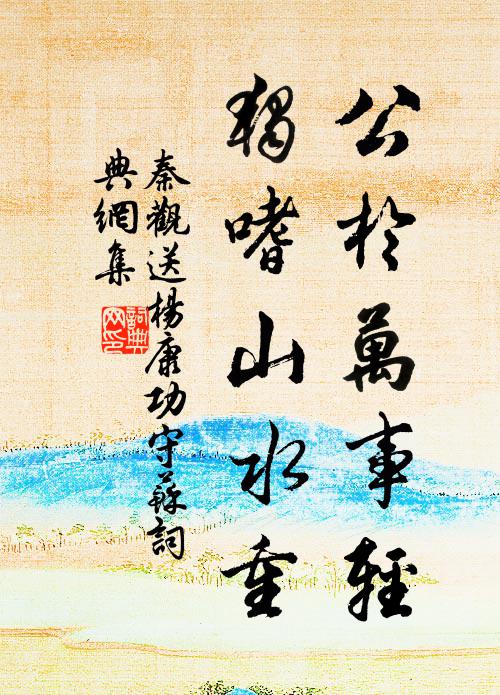 公於萬事輕
獨嗜山水重
秦觀送楊康功守蘇詞
典網集
詞典
网印